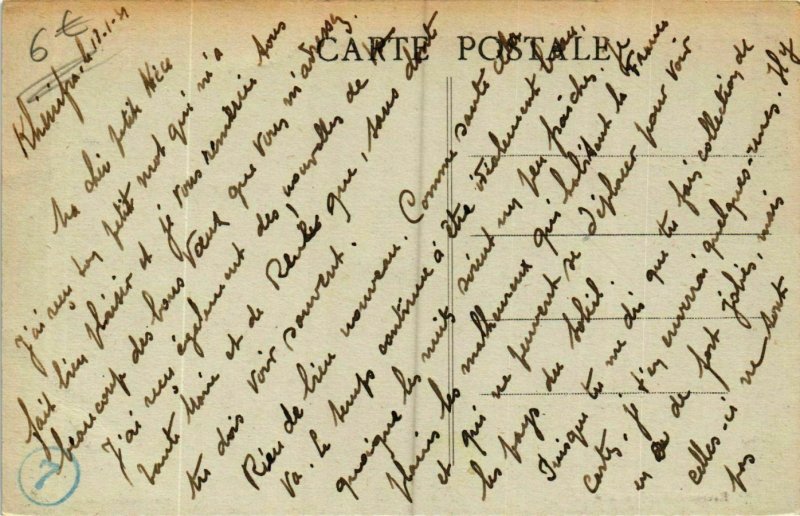 6 €
CARTE POSTALE
Khénifra le 17-1-
Ma chère petite Nièce
J'ai reçu ton petit mot qui m'a
fait bien plaisir et je vous remercie tous
beaucoup des bons vœux que vous m'adressez.
J'ai reçu également des nouvelles de
tante Marie et de Renée que, sans doute
tu dois voir souvent.
Rien de bien nouveau. Comme santé ça
va. Le temps continue à être idéalement beau,
quoique les nuits soient un peu fraîches. Je
plains les malheureux qui habitent la France
et qui ne peuvent se déplacer pour voir
les pays du soleil.
Puisque tu me dis que tu fais collection de
cartes, je t'en enverrai quelques-unes. Il y
en a de fort jolies, mais
celles-ci ne sont
pas
7